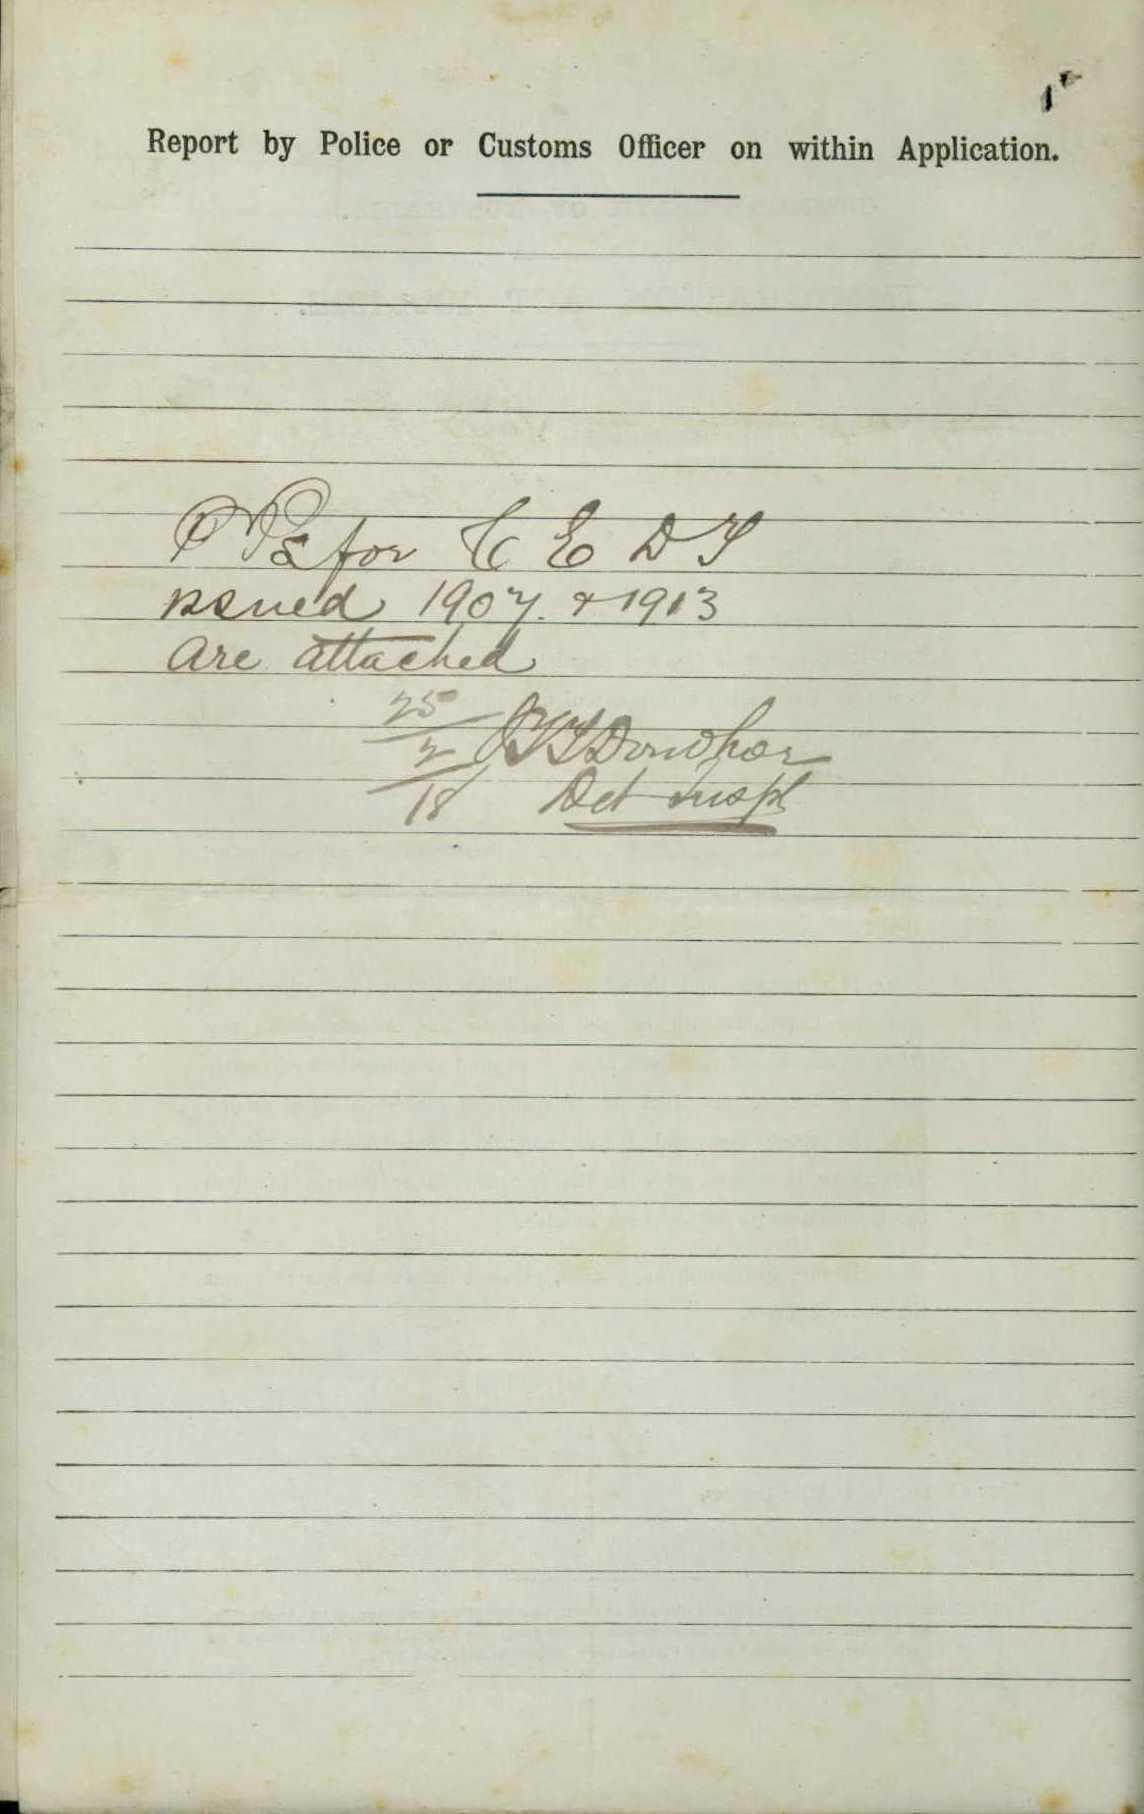 Report by Police or Customs Officer on within Application.
for C E D T
issued 1907. & 1913
are attached
25/2/18 Donohoe
Det Inspr